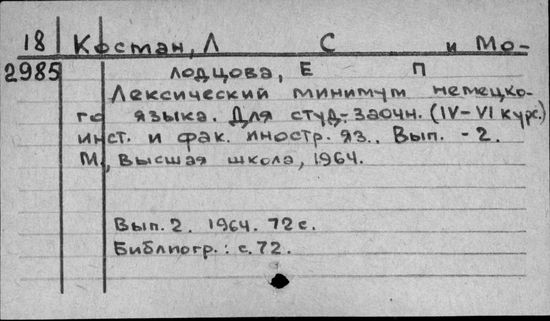 18 Костан, Л С и Мо-
2985 лодцова, Е П
Лексический минимум немецко-
го языка. Для студ-заочн. (IV-VI курс.)
инст. и фак. иностр. яз.. Вып. - 2.
М., Высшая школа, 1964.
Вып. 2. 1964. 72 с.
Библиогр.: с. 72.